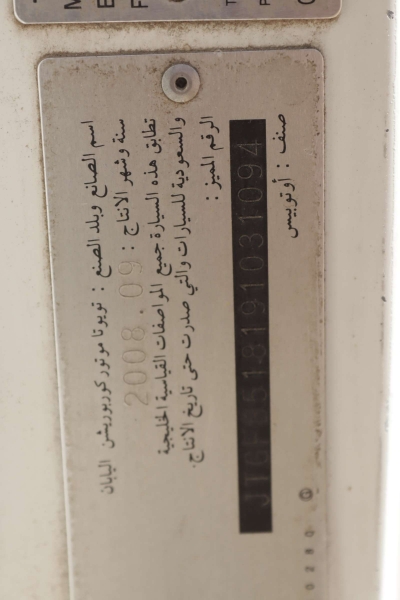 اسم الصانع وبلد الصنع : تويوتا موتور كوربوريشن اليابان
سنة وشهر الانتاج : 2008.09
تطابق هذه السيارة جميع المواصفات القياسية الخليجية
والسعودية للسيارات والتي صدرت حتى تاريخ الانتاج.
الرقم المميز :
صنف : أوتوبيس
0280